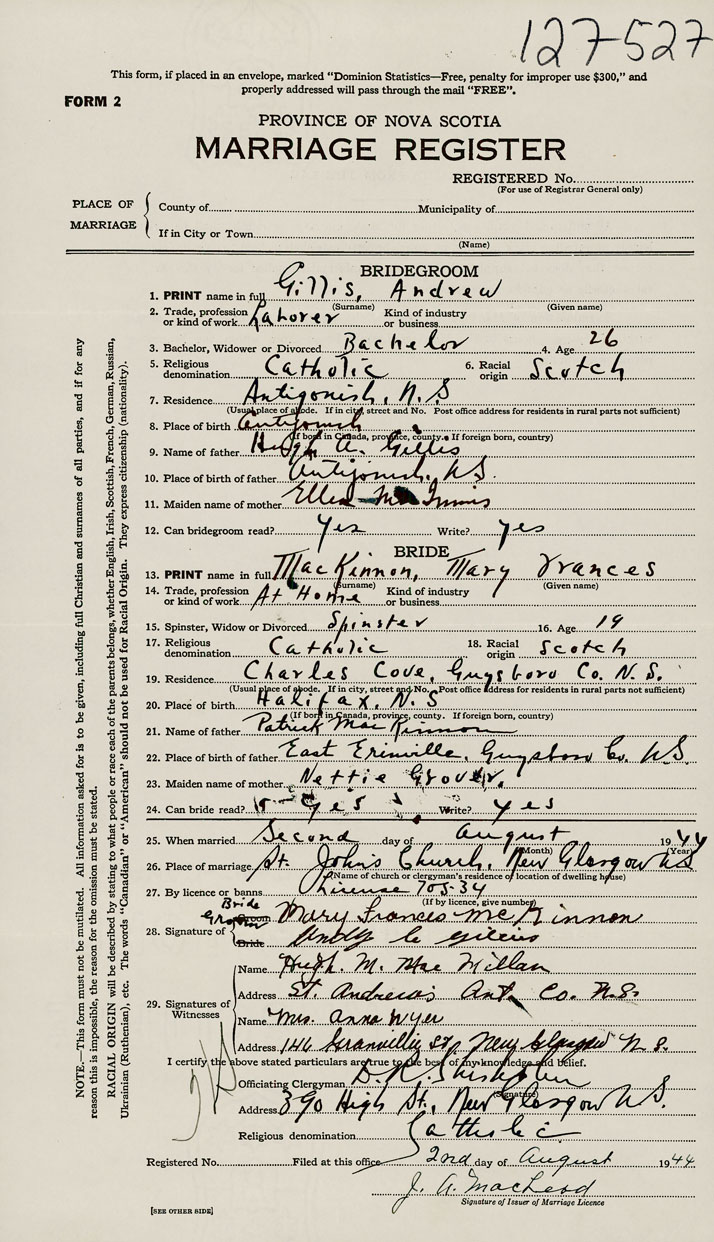 127-527
This form, if placed in an envelope, marked "Dominion Statistics—Free, penalty for improper use $300," and
properly addressed will pass through the mail "FREE".
FORM 2
PROVINCE OF NOVA SCOTIA
MARRIAGE REGISTER
REGISTERED No.
(For use of Registrar General only)
PLACE OF MARRIAGE
County of Municipality of
If in City or Town
(Name)
BRIDEGROOM
1. PRINT name in full Gillis, Andrew
(Surname) (Given name)
2. Trade, profession or kind of work Laborer Kind of industry or business
3. Bachelor, Widower or Divorced Bachelor 4. Age 26
5. Religious denomination Catholic 6. Racial origin Scotch
7. Residence Antigonish, N.S
(Usual place of abode. If in city, street and No. Post office address for residents in rural parts not sufficient)
8. Place of birth Antigonish
(If born in Canada, province, county. If foreign born, country)
9. Name of father Hugh A. Gillis
10. Place of birth of father Antigonish, N.S.
11. Maiden name of mother Ellen Mc Innis
12. Can bridegroom read? Yes Write? Yes
BRIDE
13. PRINT name in full MacKinnon, Mary Frances
(Surname) (Given name)
14. Trade, profession or kind of work At Home Kind of industry or business
15. Spinster, Widow or Divorced Spinster 16. Age 19
17. Religious denomination Catholic 18. Racial origin Scotch
19. Residence Charles Cove, Guysboro Co. N.S.
(Usual place of abode. If in city, street and No. Post office address for residents in rural parts not sufficient)
20. Place of birth Halifax, N.S
(If born in Canada, province, county. If foreign born, country)
21. Name of father Patrick MacKinnon
22. Place of birth of father East Erinville, Guysboro Co. N.S.
23. Maiden name of mother Nettie Grover.
24. Can bride read? Yes Write? Yes
25. When married Second day of August 1944
(Month) (Year)
26. Place of marriage St. John's Church, New Glasgow N.S
(Name of church or clergyman's residence or location of dwelling house)
27. By licence or banns License 705-34
(If by licence, give number)
Bride
Groom Mary Frances McKinnon
28. Signature of
Bride Gillis
29. Signatures of Witnesses
Name Hugh. M. MacMillan
Address St. Andrew's Ant. Co. N.S.
Name Mrs. Anna Wyer
Address 146 Granville St, New Glasgow N.S.
I certify the above stated particulars are true to the best of my knowledge and belief.
Officiating Clergyman
(Signature)
Address 390 High St., New Glasgow N.S.
Religious denomination Catholic
Registered No. Filed at this office 2nd day of August 1944
J. A. MacLeod
Signature of Issuer of Marriage Licence
[SEE OTHER SIDE]
NOTE.—This form must not be mutilated. All information asked for is to be given, including full Christian and surnames of all parties, and if for any
reason this is impossible, the reason for the omission must be stated.
RACIAL ORIGIN will be described by stating to what people or race each of the parents belongs, whether English, Irish, Scottish, French, German, Russian,
Ukrainian (Ruthenian), etc. The words "Canadian" or "American" should not be used for Racial Origin. They express citizenship (nationality).